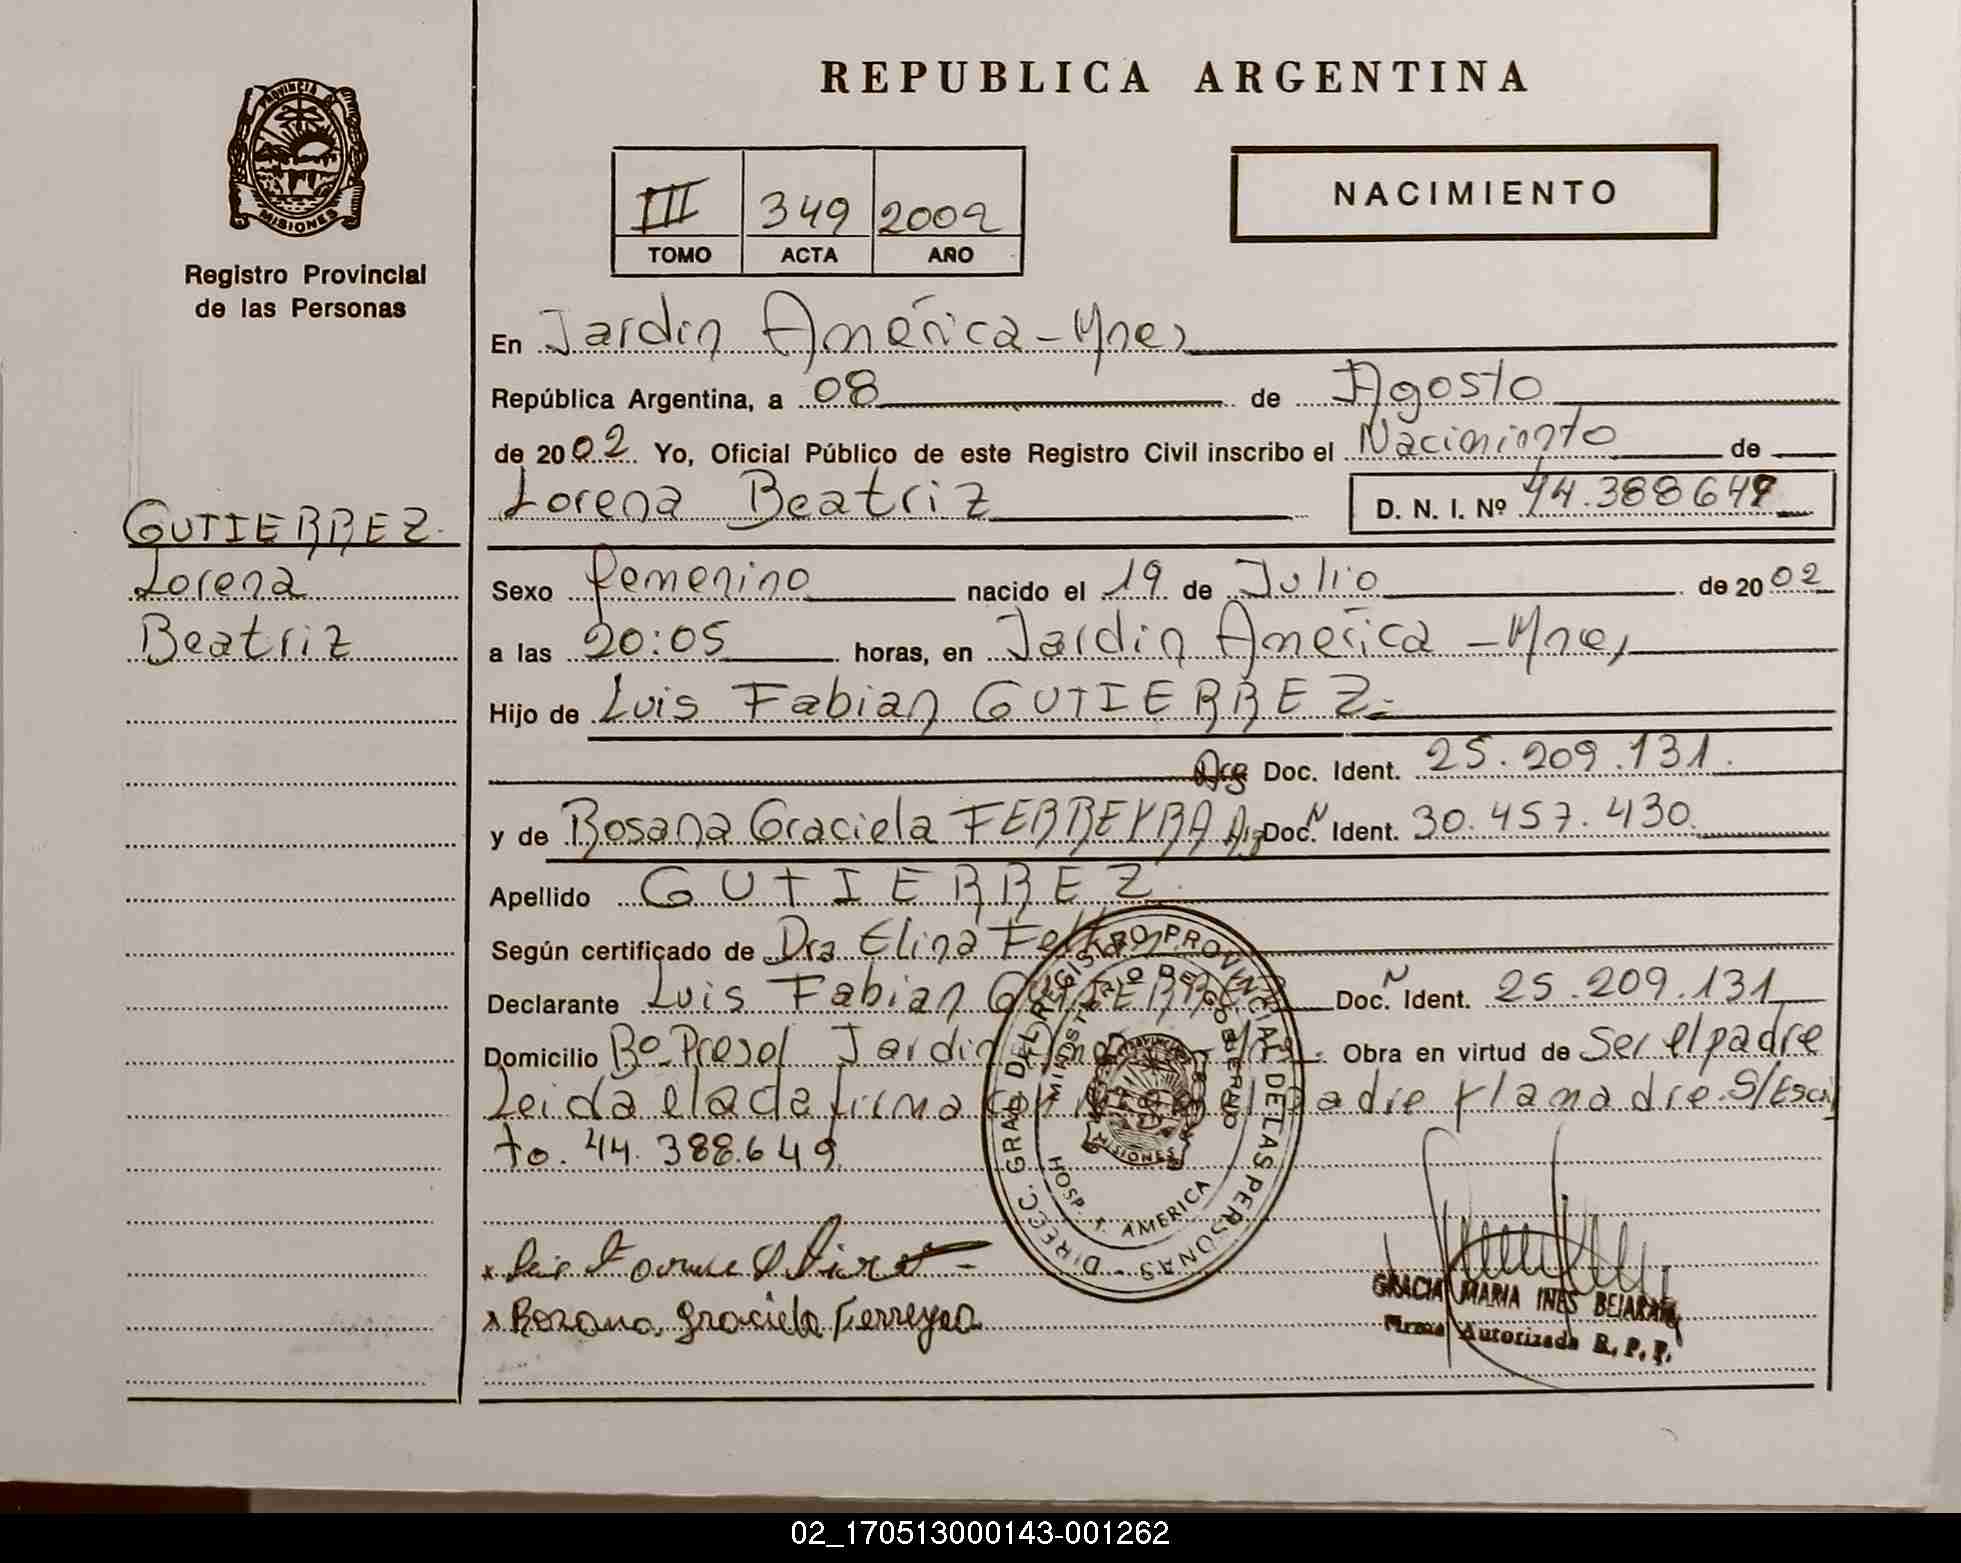 REPUBLICA ARGENTINA
PROVINCIA DE
MISIONES
Registro Provincial
de las Personas
III 349 2002
TOMO ACTA AÑO
NACIMIENTO
GUTIERREZ.
Lorena
Beatriz
En Jardin América - Mnes
República Argentina, a 08 de Agosto
de 2002 Yo, Oficial Público de este Registro Civil inscribo el Nacimiento de
Lorena Beatriz D. N. I. Nº 44.388649
Sexo femenino nacido el 19 de Julio de 2002
a las 20:05 horas, en Jardin América - Mnes
Hijo de Luis Fabian GUTIERREZ.
Arg Doc. Ident. 25.209.131.
y de Rosana Graciela FERREYRA Arg Doc. N Ident. 30.457.430.
Apellido GUTIERREZ.
Según certificado de Dra Elina
Declarante Luis Fabian GUTIERREZ Doc. N Ident. 25.209.131
Domicilio Bo. Jardin Obra en virtud de Ser el padre
Leida el acta firma padre y la madre. S/Escri
to. 44.388.649.
DIREC. GRAL. DEL REGISTRO PROVINCIAL DE LAS PERSONAS
MINISTERIO DE GOBIERNO
MISIONES
HOSP. J. AMERICA
x Rozana Graciela Ferreyra
GRACIA MARIA INES BEJARANO
Firma Autorizada R. P. P.
02_170513000143-001262